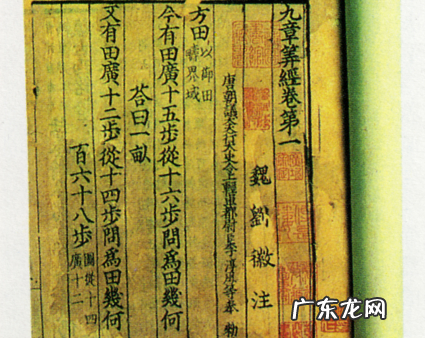 九章筭經卷第一
魏 劉 徽 注
唐朝議大夫行太史令上輕車都尉臣李淳風等奉 勑
方田 以御田疇界域
今有田廣十五步從十六步問爲田幾何
荅曰一畝
又有田廣十二步從十四步問爲田幾何
百六十八步 圖從十四廣十二
广东龙网